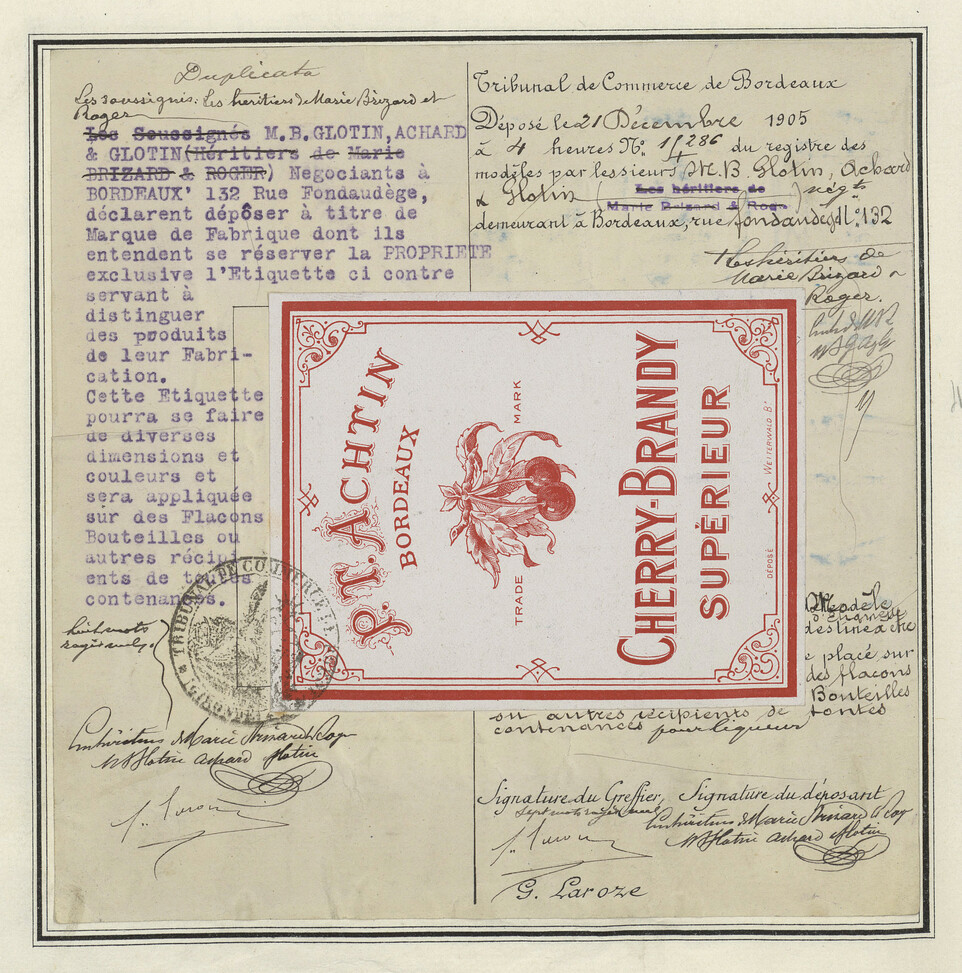 Duplicata
Les soussignés: Les héritiers de Marie Brizard et
Roger
Les Soussignés M.B.GLOTIN, ACHARD
& GLOTIN(Héritiers de Marie
BRIZARD & ROGER) Negociants à
BORDEAUX' 132 Rue Fondaudège,
déclarent dépôser à titre de
Marque de Fabrique dont ils
entendent se réserver la PROPRIETE
exclusive l'Etiquette ci contre
servant à
distinguer
des produits
de leur Fabri-
cation.
Cette Etiquette
pourra se faire
de diverses
dimensions et
couleurs et
sera appliquée
sur des Flacons
Bouteilles ou
autres récipi
ents de toutes
contenances.
huit mots
rayés nuls
TRIBUNAL DE COMMERCE
(GIRONDE)
Tribunal de Commerce de Bordeaux
Déposé le 21 Décembre 1905
à 4 heures No. 286 du registre des
modèles par les sieurs M.B. Glotin, Achard
& Glotin (Les héritiers de
Marie Brizard & Roger) négts
demeurant à Bordeaux, rue fondaudège No. 132
Les héritiers de
Marie Brizard &
Roger.
P.T. ACHTIN
BORDEAUX
TRADE MARK
CHERRY-BRANDY
SUPÉRIEUR
DÉPOSÉ WETTERWALD. Bx
Modèle
d'étiquette
destiné à être
placé sur
des flacons
Bouteilles
ou autres récipients de toutes
contenances pour liqueur
Signature du Greffier, Signature du déposant
Sept mots rayés nuls
G. Laroze